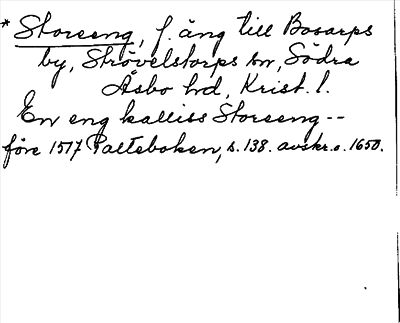 * Storeeng, f. äng till Bosarps
by, Strövelstorps sn, Södra
Åsbo hd, Krist. l.
En eng kalliss Storeeng --
före 1517 Palteboken, s. 138. avskr. o. 1650.